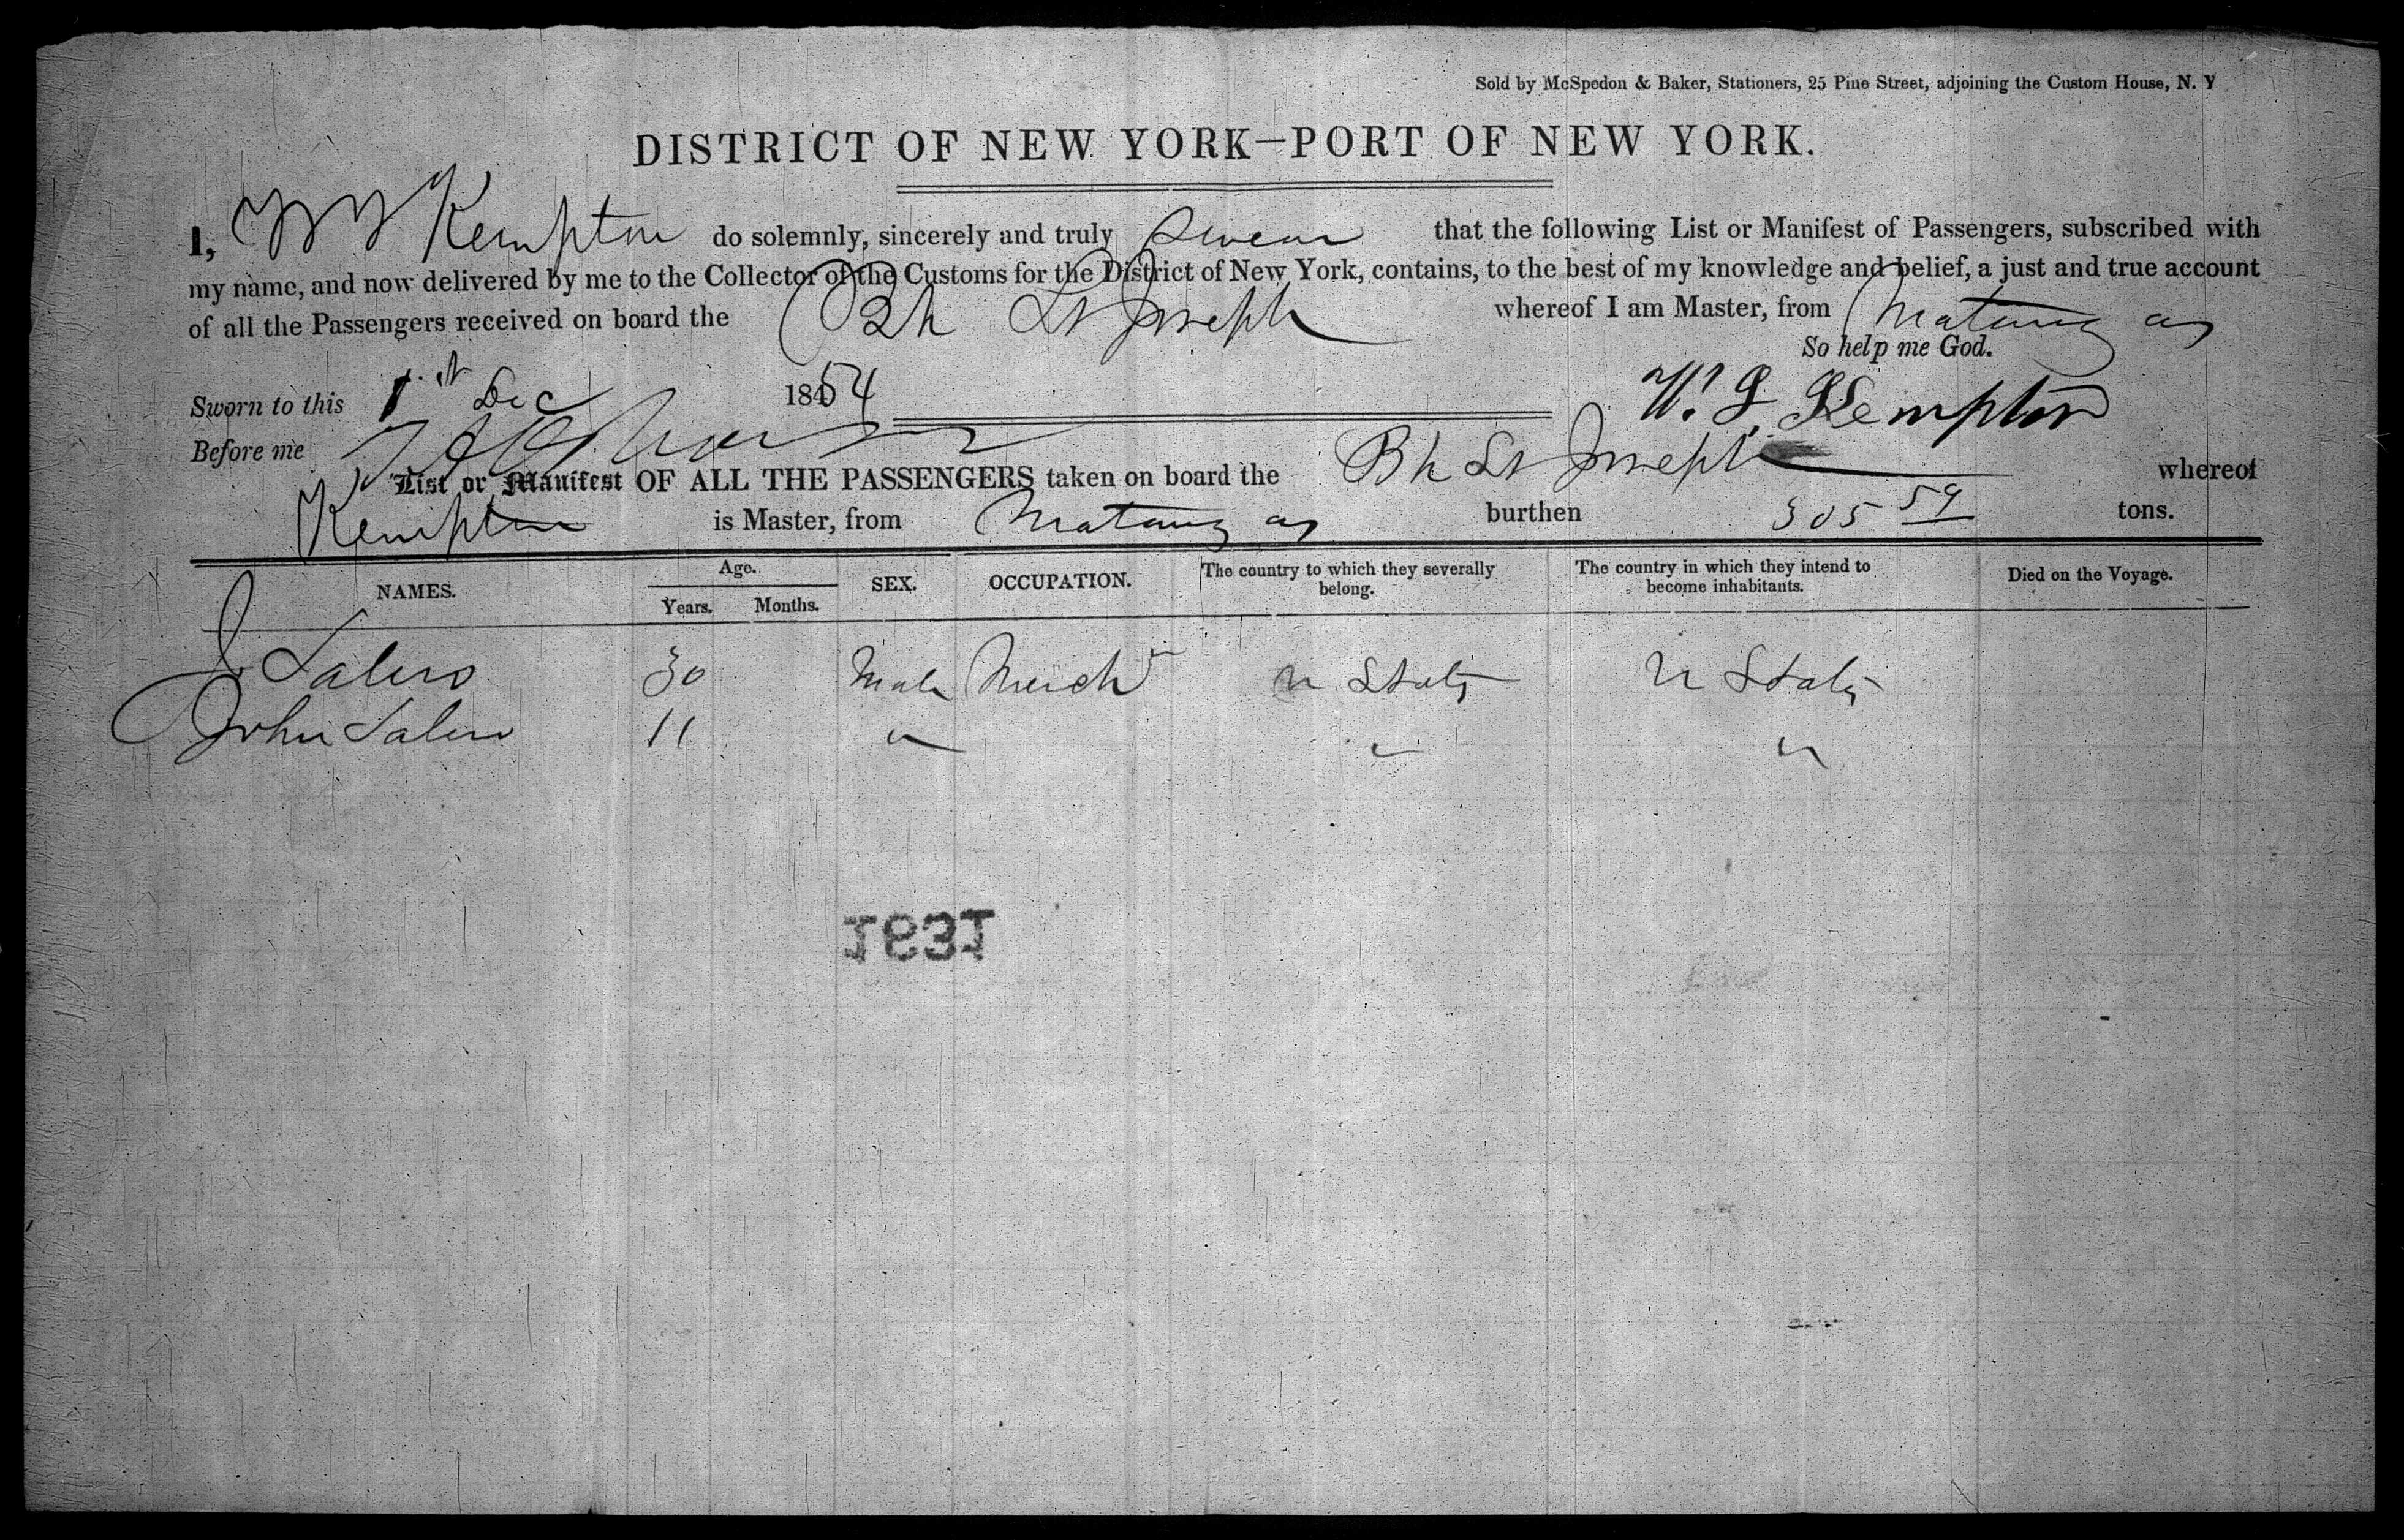 Sold by McSpedon & Baker, Stationers, 25 Pine Street, adjoining the Custom House, N. Y
DISTRICT OF NEW YORK—PORT OF NEW YORK.
I, Kempton do solemnly, sincerely and truly swear that the following List or Manifest of Passengers, subscribed with
my name, and now delivered by me to the Collector of the Customs for the District of New York, contains, to the best of my knowledge and belief, a just and true account
of all the Passengers received on board the Bk St Joseph whereof I am Master, from Matanzas
So help me God.
Sworn to this 1st Dec 1854 W. Kempton
Before me
List or Manifest OF ALL THE PASSENGERS taken on board the Bk St Joseph whereof
Kempton is Master, from Matanzas burthen 305 59 tons.
NAMES. Age. Years. Months. SEX. OCCUPATION. The country to which they severally belong. The country in which they intend to become inhabitants. Died on the Voyage.
J 30 Male Merch U States U States
John 11 " " "
1631